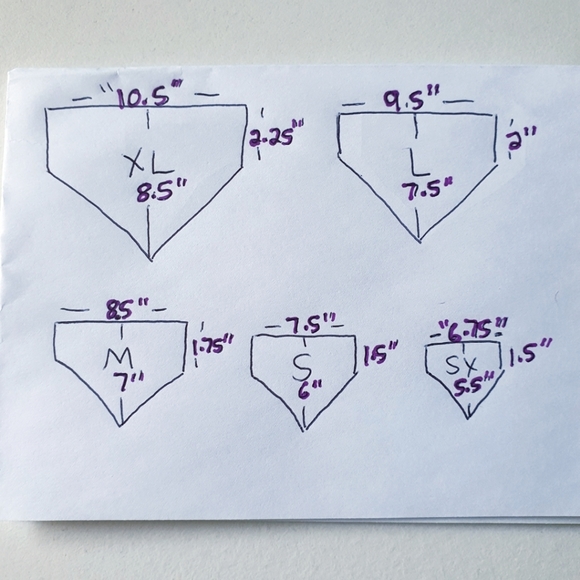 "10.5"
XL
2.25"
8.5"
9.5"
L
2"
7.5"
8.5"
M
1.75"
7"
7.5"
S
1.5"
6"
"6.75"
SX
1.5"
5.5"